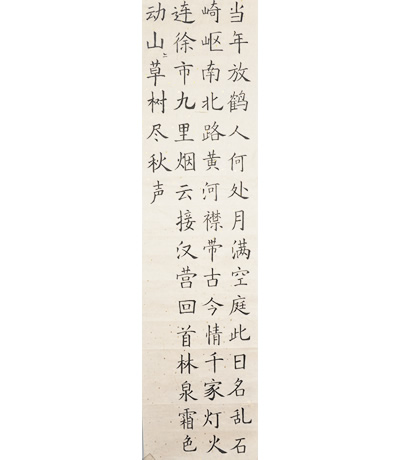 当年放鹤人何处月满空庭此日名乱石
崎岖南北路黄河襟带古今情千家灯火
连徐市九里烟云接汉营回首林泉霜色
动山上草树尽秋声